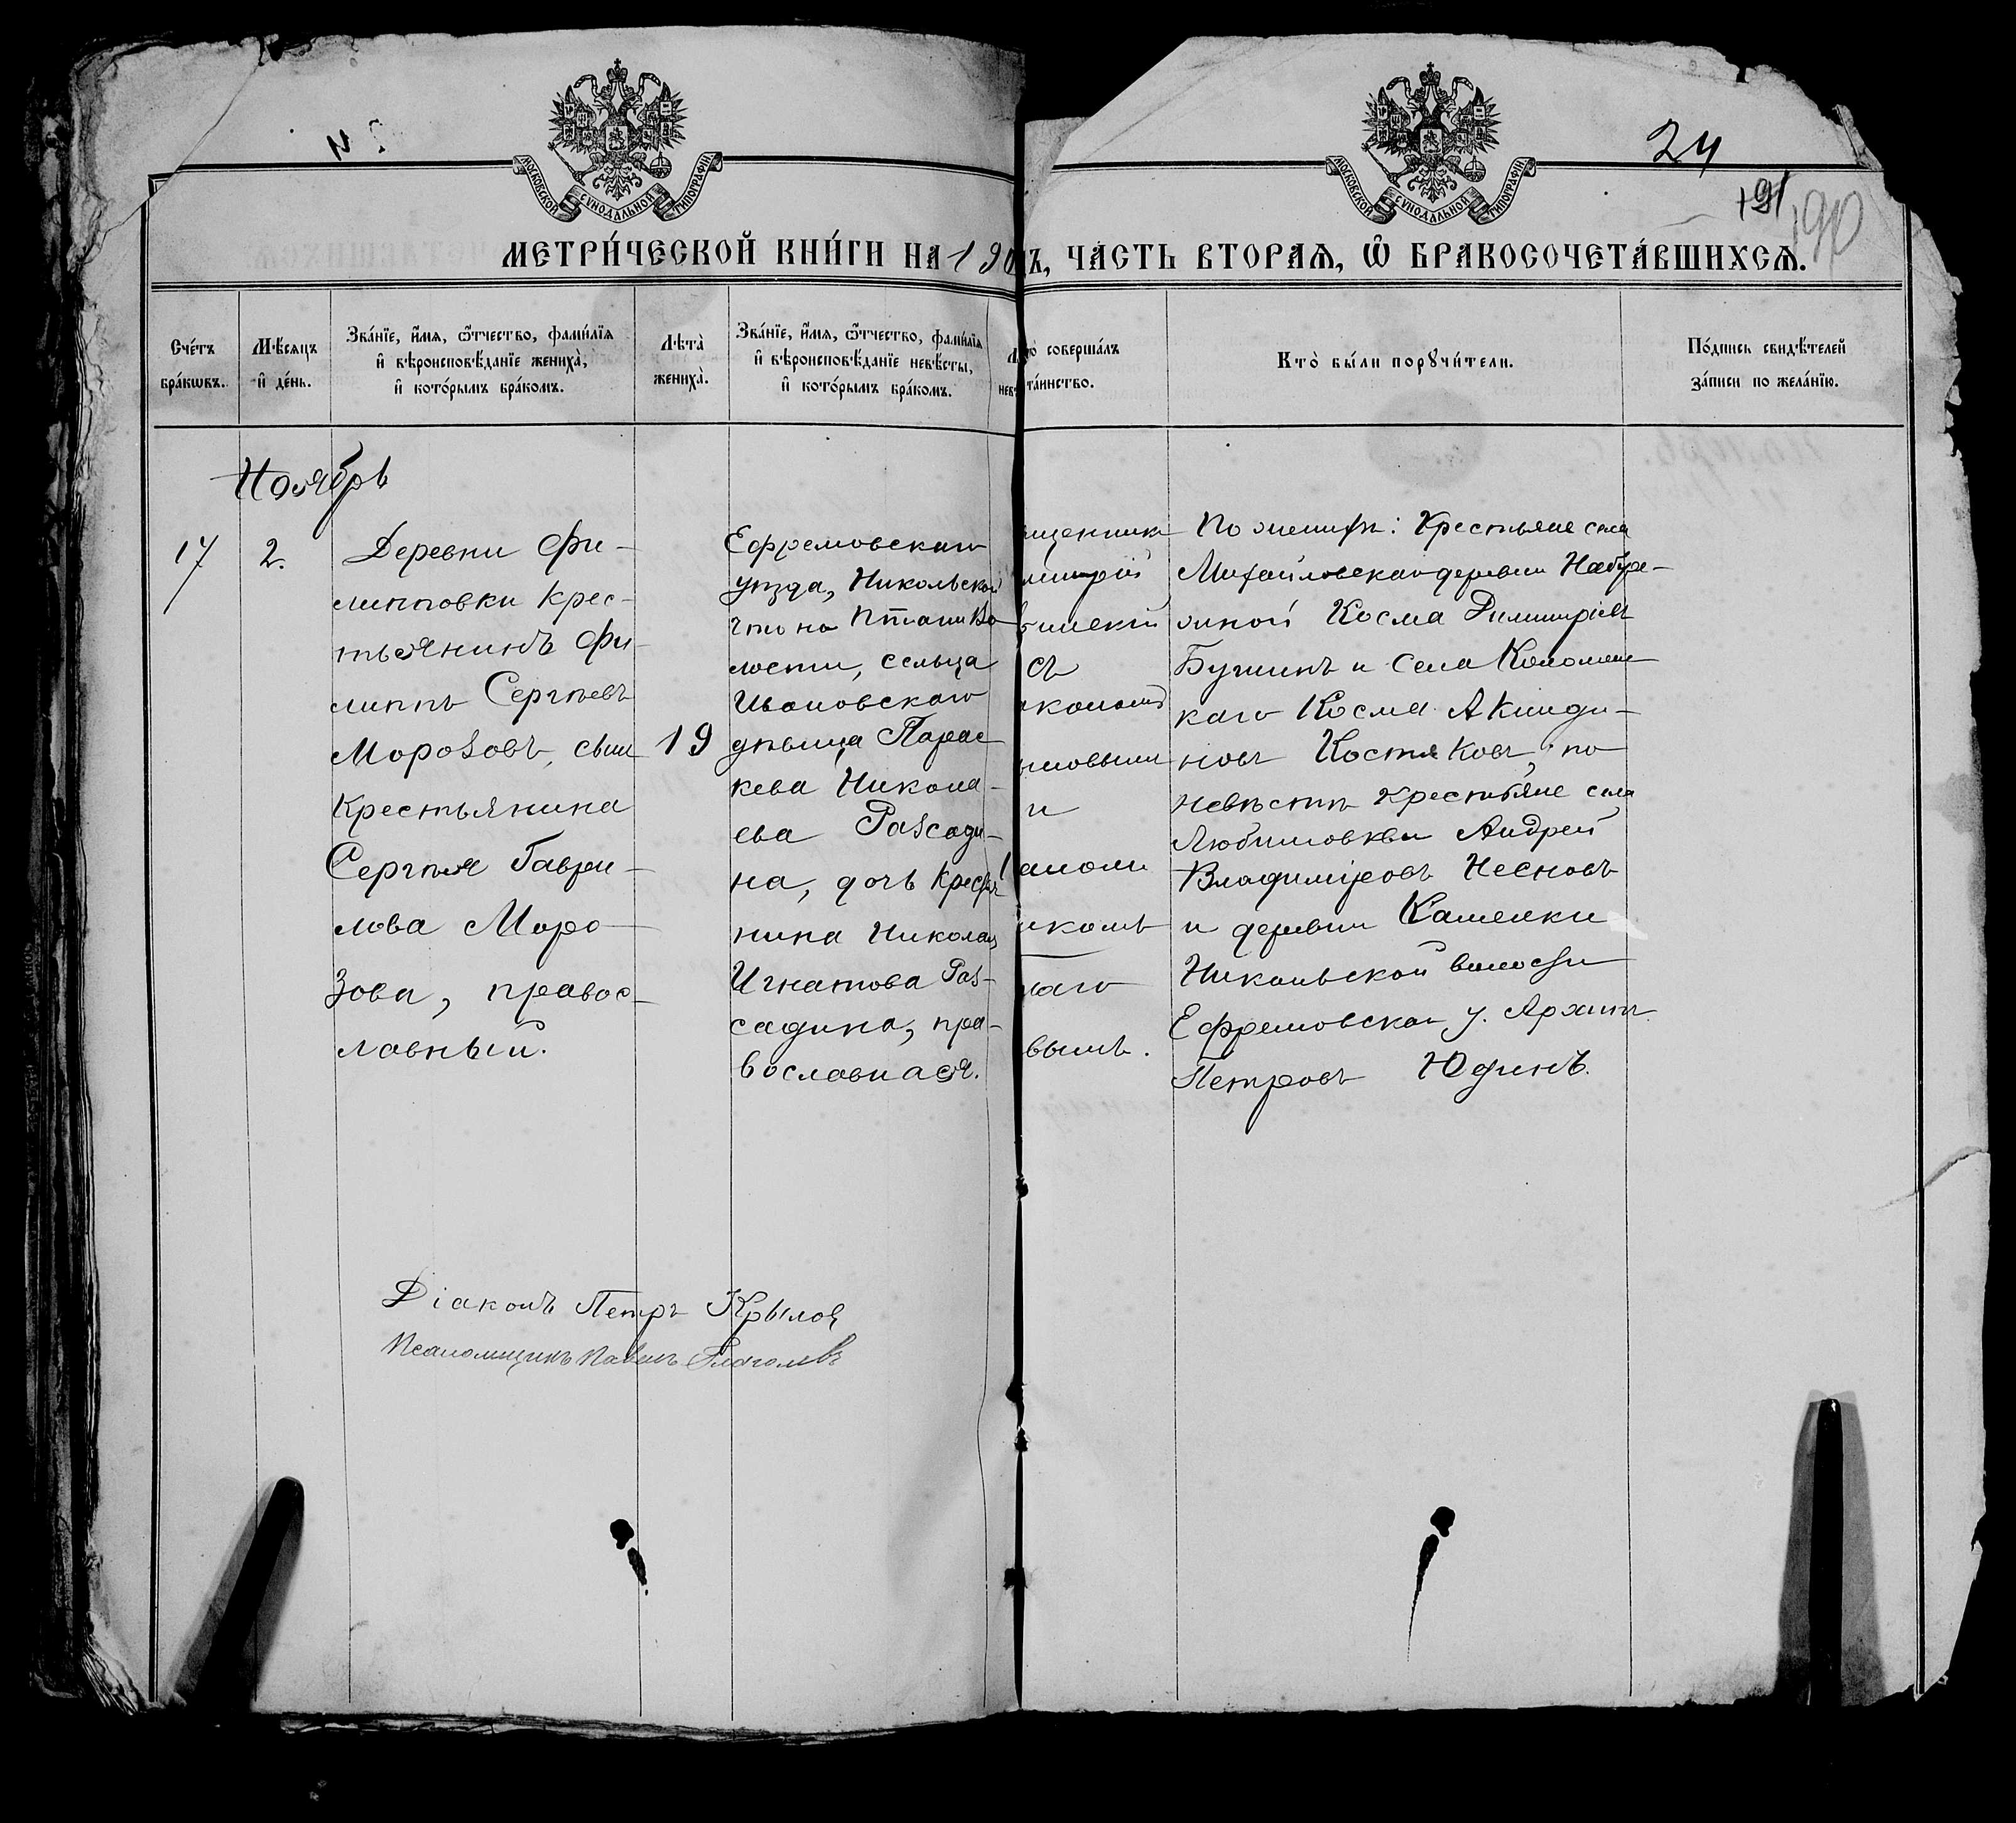 МОСКОВСКОЙ СѴНОДАЛЬНОЙ ТИПОГРАФІИ
МОСКОВСКОЙ СѴНОДАЛЬНОЙ ТИПОГРАФІИ
24
191
190
МЕТРИ́ЧЕСКОЙ КНИ́ГИ НА 190
Ъ, ЧА́СТЬ ВТОРАѦ, Ѿ БРАКОСОЧЕТА́ВШИХСѦ.
Сче́тъ
бра́кѡвъ.
Мѣ́сѧцъ
и҆ де́нь.
Зва́нїе, и҆́мѧ, ѻ҆́тчество, фами́лїѧ
и҆ вѣроисповѣ́данїе жениха̀,
и҆ кото́рымъ бра́комъ.
Лѣ́та̀
жениха̀.
Зва́нїе, и҆́мѧ, ѻ҆́тчество, фами́лїѧ
и҆ вѣроисповѣ́данїе невѣ́сты,
и҆ кото́рымъ бра́комъ.
то̀ соверша́лъ
та́инство.
Кто̀ бы́ли порꙋчи́тели.
По́дпись свидѣ́телей
за́писи по жела́нїю.
Ноябрь
17
2.
Деревни Фи-
липповки крес-
тьянинъ Фи-
липпъ Сергѣевъ
Морозовъ, сынъ
Крестьянина
Сергѣя Гаври-
лова Моро-
зова, правос-
лавный.
19
Ефремовскаго
уѣзда, Никольской
что на Птани Во-
лости, сельца
Ивановскаго
дѣвица Парас
кева Никола-
ева Разсади-
на, дочь крестья
нина Николая
Игнатова Раз-
садина, пра-
вославная.
щенникъ
митрій
съ
и
вымъ.
По женихѣ: Крестьяне села
Михайловскаго деревни
Косма Димитріевъ
и села Коломен
каго Косма Акинди-
новъ Костяковъ, по
невѣстѣ крестьяне села
Любимовки Андрей
Владиміровъ Несновъ
и деревни Каменки
Никольской волости
Ефремовскаго у. Архипъ
Петровъ Юдинъ.
Діаконъ Петръ Крыловъ
Псаломщикъ Павелъ Глаголевъ